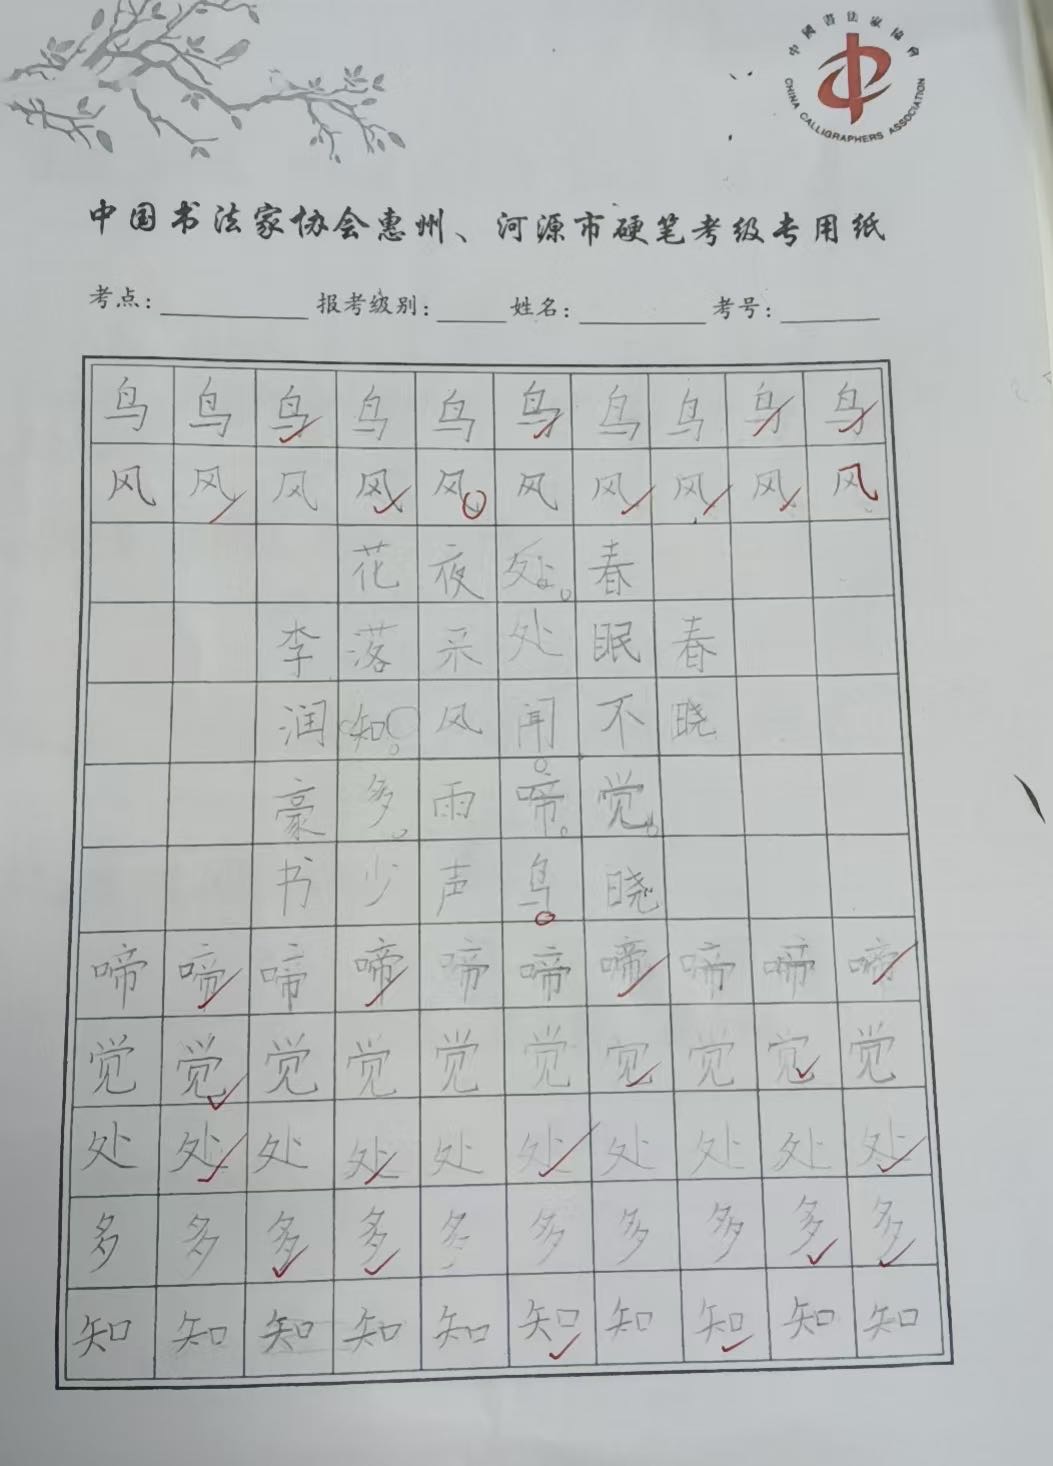 中國書法家協會
CHINA CALLIGRAPHERS ASSOCIATION
中国书法家协会惠州、河源市硬笔考级专用纸
考点： 报考级别： 姓名： 考号：
鸟鸟鸟鸟鸟鸟鸟鸟鸟鸟
风风风风风风风风风风
花夜处。春
李落来处眠春
润知。风闻不晓
豪多。雨啼。觉。
书少声鸟。晓
啼啼啼啼啼啼啼啼啼啼
觉觉觉觉觉觉觉觉觉觉
处处处处处处处处处处
多多多多多多多多多多
知知知知知知知知知知